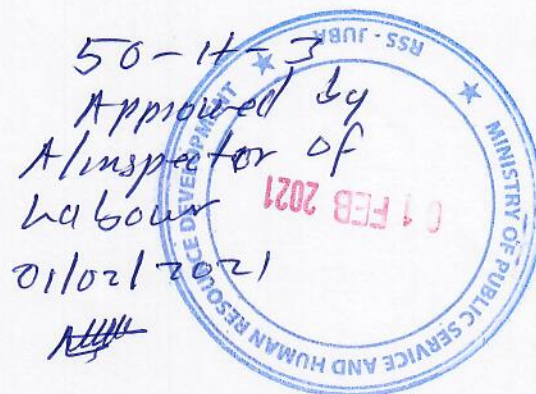 50-H-3
Approved by
A/inspector of
Labour
01/02/2021
MINISTRY OF PUBLIC SERVICE AND HUMAN RESOURCE DEVELOPMENT
RSS - JUBA
01 FEB 2021